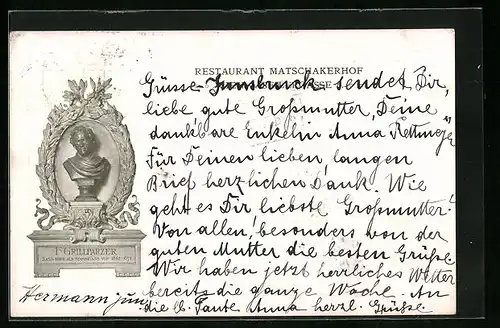 RESTAURANT MATSCHAKERHOF
Grüsse - Innsbruck sendet Dir,
liebe, gute Großmutter, Deine
dankbare Enkelin Anna Rettmeyer
Für Deinen lieben, langen
Brief herzlichen Dank. Wie
geht es Dir liebste Großmutter?
Von allen, besonders von der
guten Mutter die besten Grüße.
Wir haben jetzt herrliches Wetter
bereits die ganze Woche. An
die lb. Tante Anna herzl. Grüsse.
Hermann jun.
F. GRILLPARZER